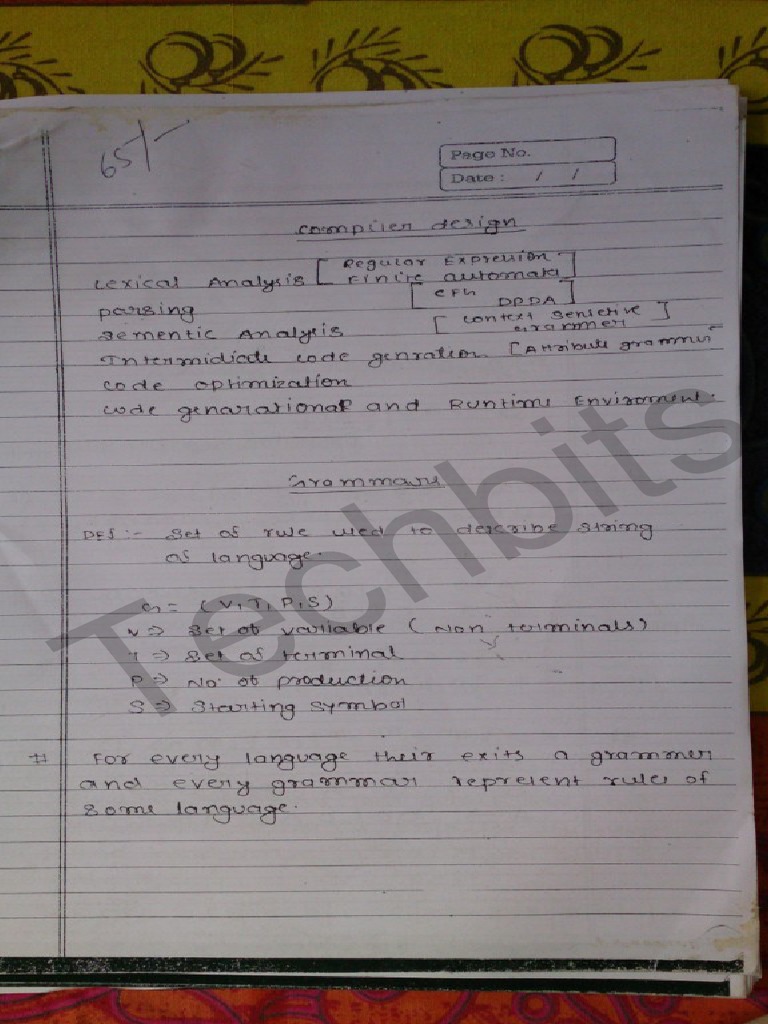 65/-
Page No.
Date : / /
compiler design
Lexical Analysis [ Regular Expression.
Finite automata ]
parsing [ CFG
DPDA ]
Sementic Analysis [ Context Sensetive
Grammer ]
Intermidiade code genration [ Attribute grammer
code optimization
code genarational and Runtime Enviroment.
Grammars
DEf :- Set of rule used to describe string
of language.
G = (V, T, P, S)
V => Set of variable ( Non terminals)
T => Set of terminal
P => No. of production
S => Starting symbol
# For every language their exits a grammer
and every grammar represent rules of
some language.
Techbits